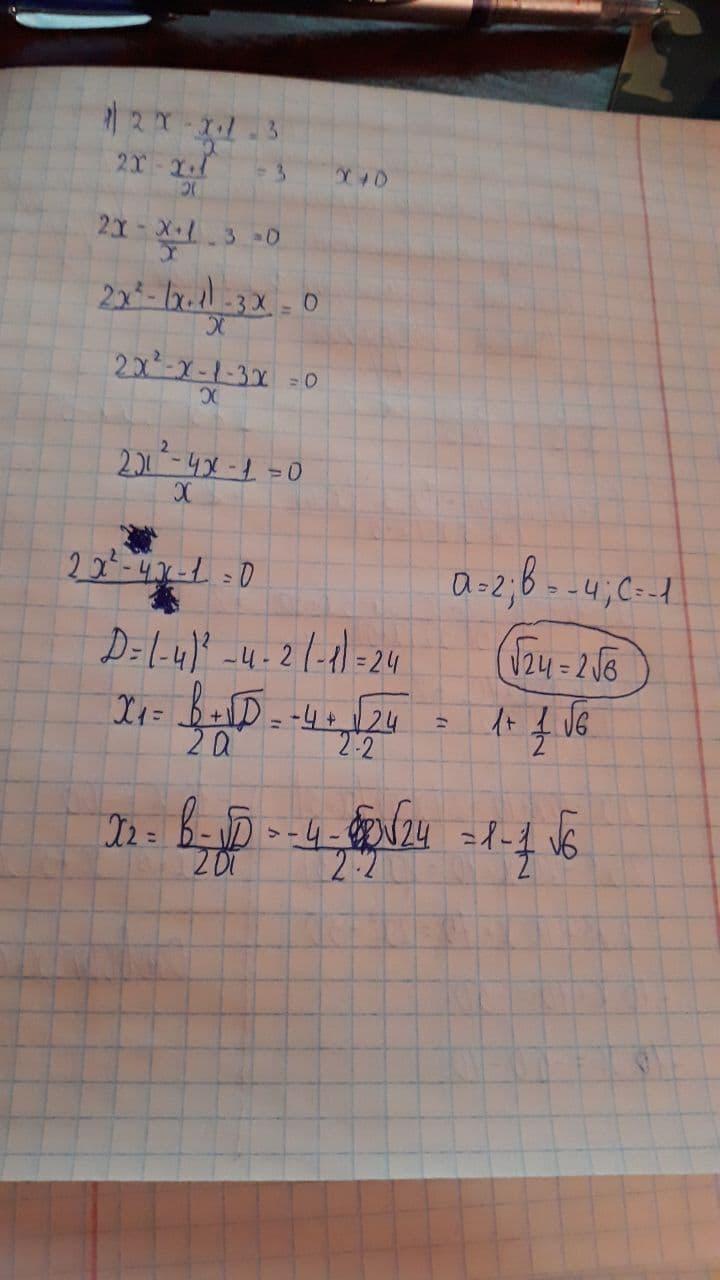 1) 2x - x+1/x = 3
2x - x+1/x = 3 x≠0
2x - x+1/x - 3 = 0
2x² - (x+1) - 3x/x = 0
2x² - x - 1 - 3x/x = 0
2x² - 4x - 1/x = 0
2x² - 4x - 1 = 0 a=2; b=-4; c=-1
D=(-4)² - 4 · 2 (-1) = 24 √24 = 2√6
x1 = b+√D/2a = -4+√24/2·2 = 1+ 1/2 √6
x2 = b-√D/2a = -4-√24/2·2 = 1 - 1/2 √6